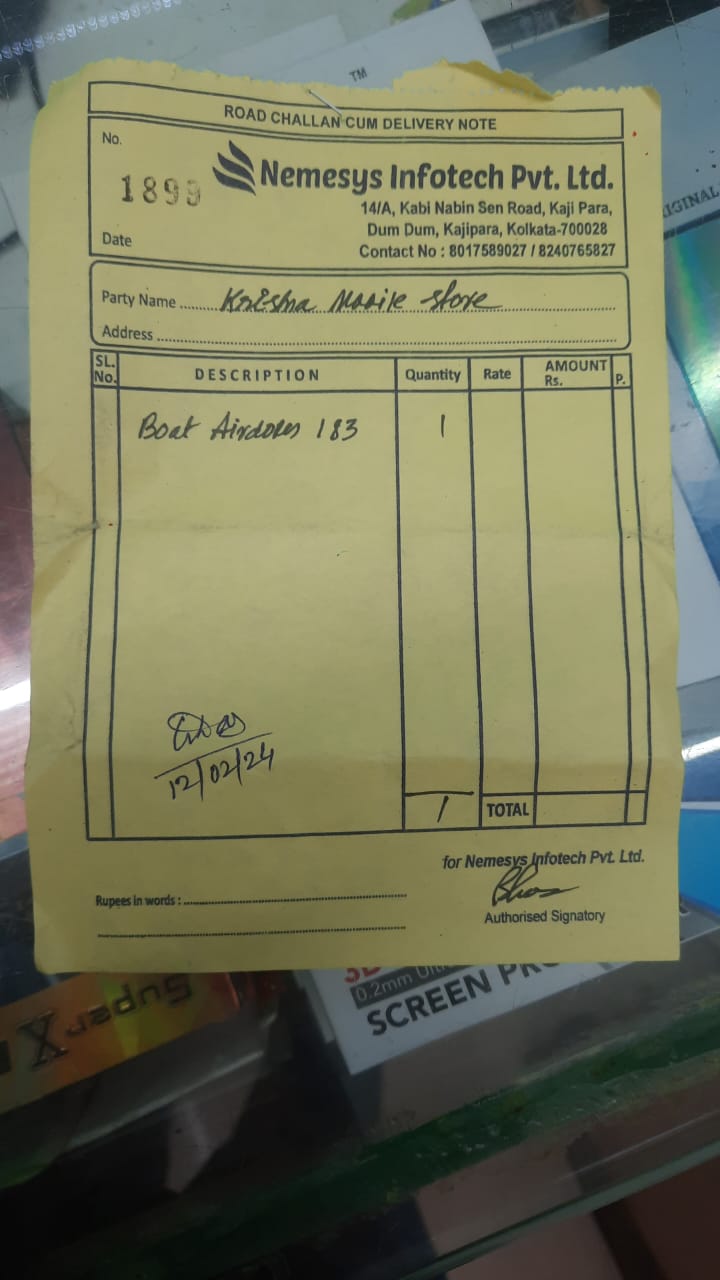 TM
ROAD CHALLAN CUM DELIVERY NOTE
No.
1899
Nemesys Infotech Pvt. Ltd.
14/A, Kabi Nabin Sen Road, Kaji Para,
Dum Dum, Kajipara, Kolkata-700028
Date
Contact No : 8017589027 / 8240765827
Party Name Krishna Mobile Store
Address
SL. No. DESCRIPTION Quantity Rate AMOUNT Rs. P.
Boat Airdopes 183 1
12/02/24
1 TOTAL
for Nemesys Infotech Pvt. Ltd.
Rupees in words :
Authorised Signatory
0.2mm
SCREEN
Super X